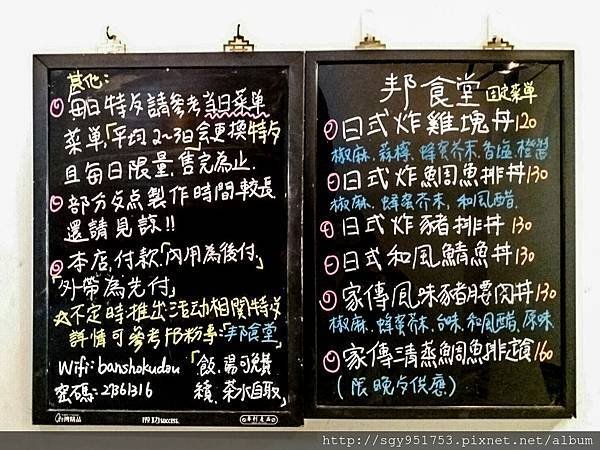 其他:
每日特反請參考當日菜單
菜單,「平均2~3日會更換特反
且每日限量,售完為止.
部分反点製作時間較長
還請見諒!!
本店,付款「內用為後付」
「外帶為先付」
☆不定時推出活动相關特反
詳情可參考FB粉專:「邦食堂」
Wifi: banshokudou 「飯,湯可免費
密碼: 2361316 續,茶水自取」
台灣精品
得力success.
專利產品
邦食堂 固定菜單
日式炸雞塊丼120
椒麻.蒜檸.蜂蜜芥末.
日式炸鯛魚排丼130
椒麻.蜂蜜芥末.和風醋.
日式炸豬排丼130
日式和風鯖魚丼130
家傳風味豬腰肉丼130
椒麻.蜂蜜芥末.台味.和風醋.原味
家傳清蒸鯛魚排 160
(限晚歺供應)
http://sgy951753.pixnet.net/album